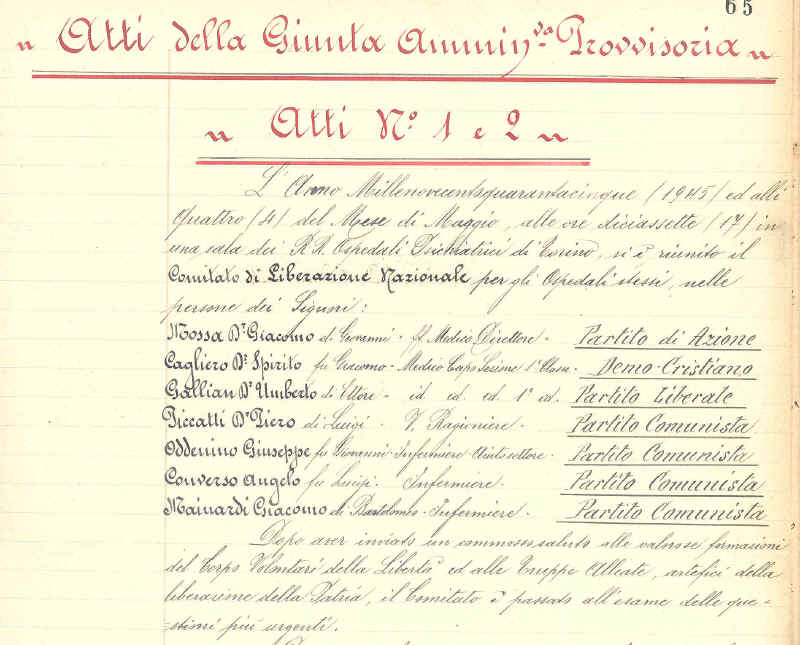 65
" Atti della Giunta Ammin.va Provvisoria "
" Atti N.o 1 e 2 "
L'Anno Millenovecentoquarantacinque /1945/ ed alli
Quattro /4/ del Mese di Maggio, alle ore diciassette /17/ in
una sala dei R.R. Ospedali Psichiatrici di Torino, si è riunito il
Comitato di Liberazione Nazionale per gli Ospedali stessi, nelle
persone dei Signori:
Mossa Dr Giacomo di Giovanni - ff Medico Direttore - Partito di Azione
Cagliero Dr Spirito fu Giacomo - Medico Capo Sezione 1a Classe - Demo-Cristiano
Gallian Dr Umberto di Ettore - id id. id. 1a id. Partito Liberale
Piccatti Dr Piero di Luigi - V. Ragioniere - Partito Comunista
Oddenino Giuseppe fu Giovanni - Infermiere Aiuto settore - Partito Comunista
Converso Angelo fu Luigi. Infermiere - Partito Comunista
Mainardi Giacomo di Bartolomeo - Infermiere - Partito Comunista
Dopo aver inviato un commosso saluto alle valorose formazioni
del Corpo Volontari della Libertà ed alle Truppe Alleate, artefici della
liberazione della Patria, il Comitato è passato all'esame delle que-
=stioni più urgenti.